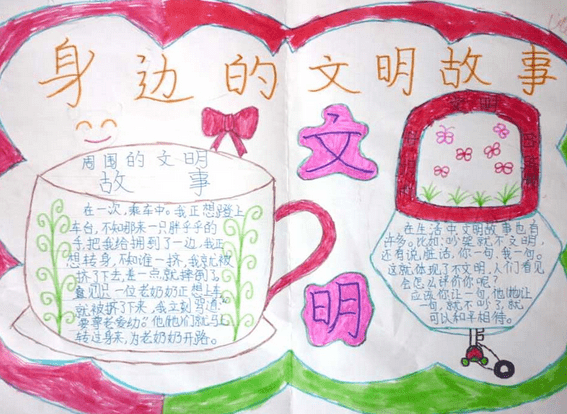 身边的文明故事
周围的文明
故事
在一次,乘车中。我正想蹬上
车台,不知那来一只胖乎乎的
手,把我给拥到了一边,我正
想转身,不知谁一挤,我就被
挤下了去,差一点就摔倒了。
只一位老奶奶正想上车
就被挤了下来,我立刻
要尊老爱幼。他他们就马上
转过身来,为老奶奶开路。
文
明
文明
在生活中文明故事也有
许多。比如:吵架就不文明,
还有说脏话,你一句,我一句。
这就体现了不文明,人们看见
会怎么评价你呢?
应该你让一句,他让
一句,就不吵了,就
可以和平相待。